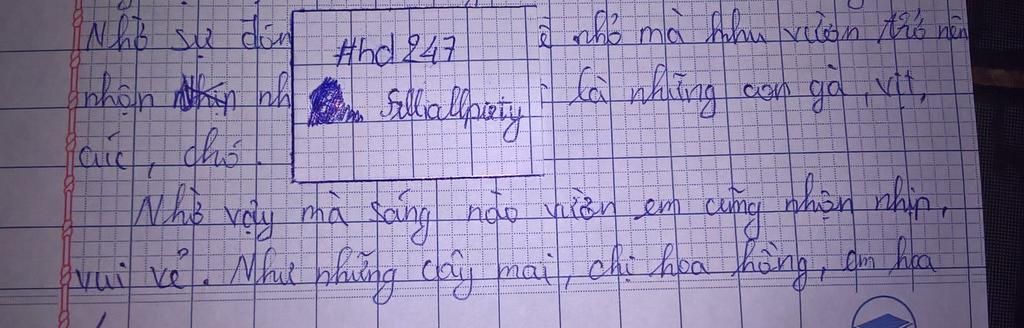 Nhờ sự đón
nhỏ mà khu vườn trở nên
#hd247
nhộn nh
là những con gà, vịt,
Filiallpiety
cúc, chó
Nhờ vậy mà sáng nào vườn em cũng nhộn nhịp,
vui vẻ. Như những cây mai, chị hoa hồng, em hoa